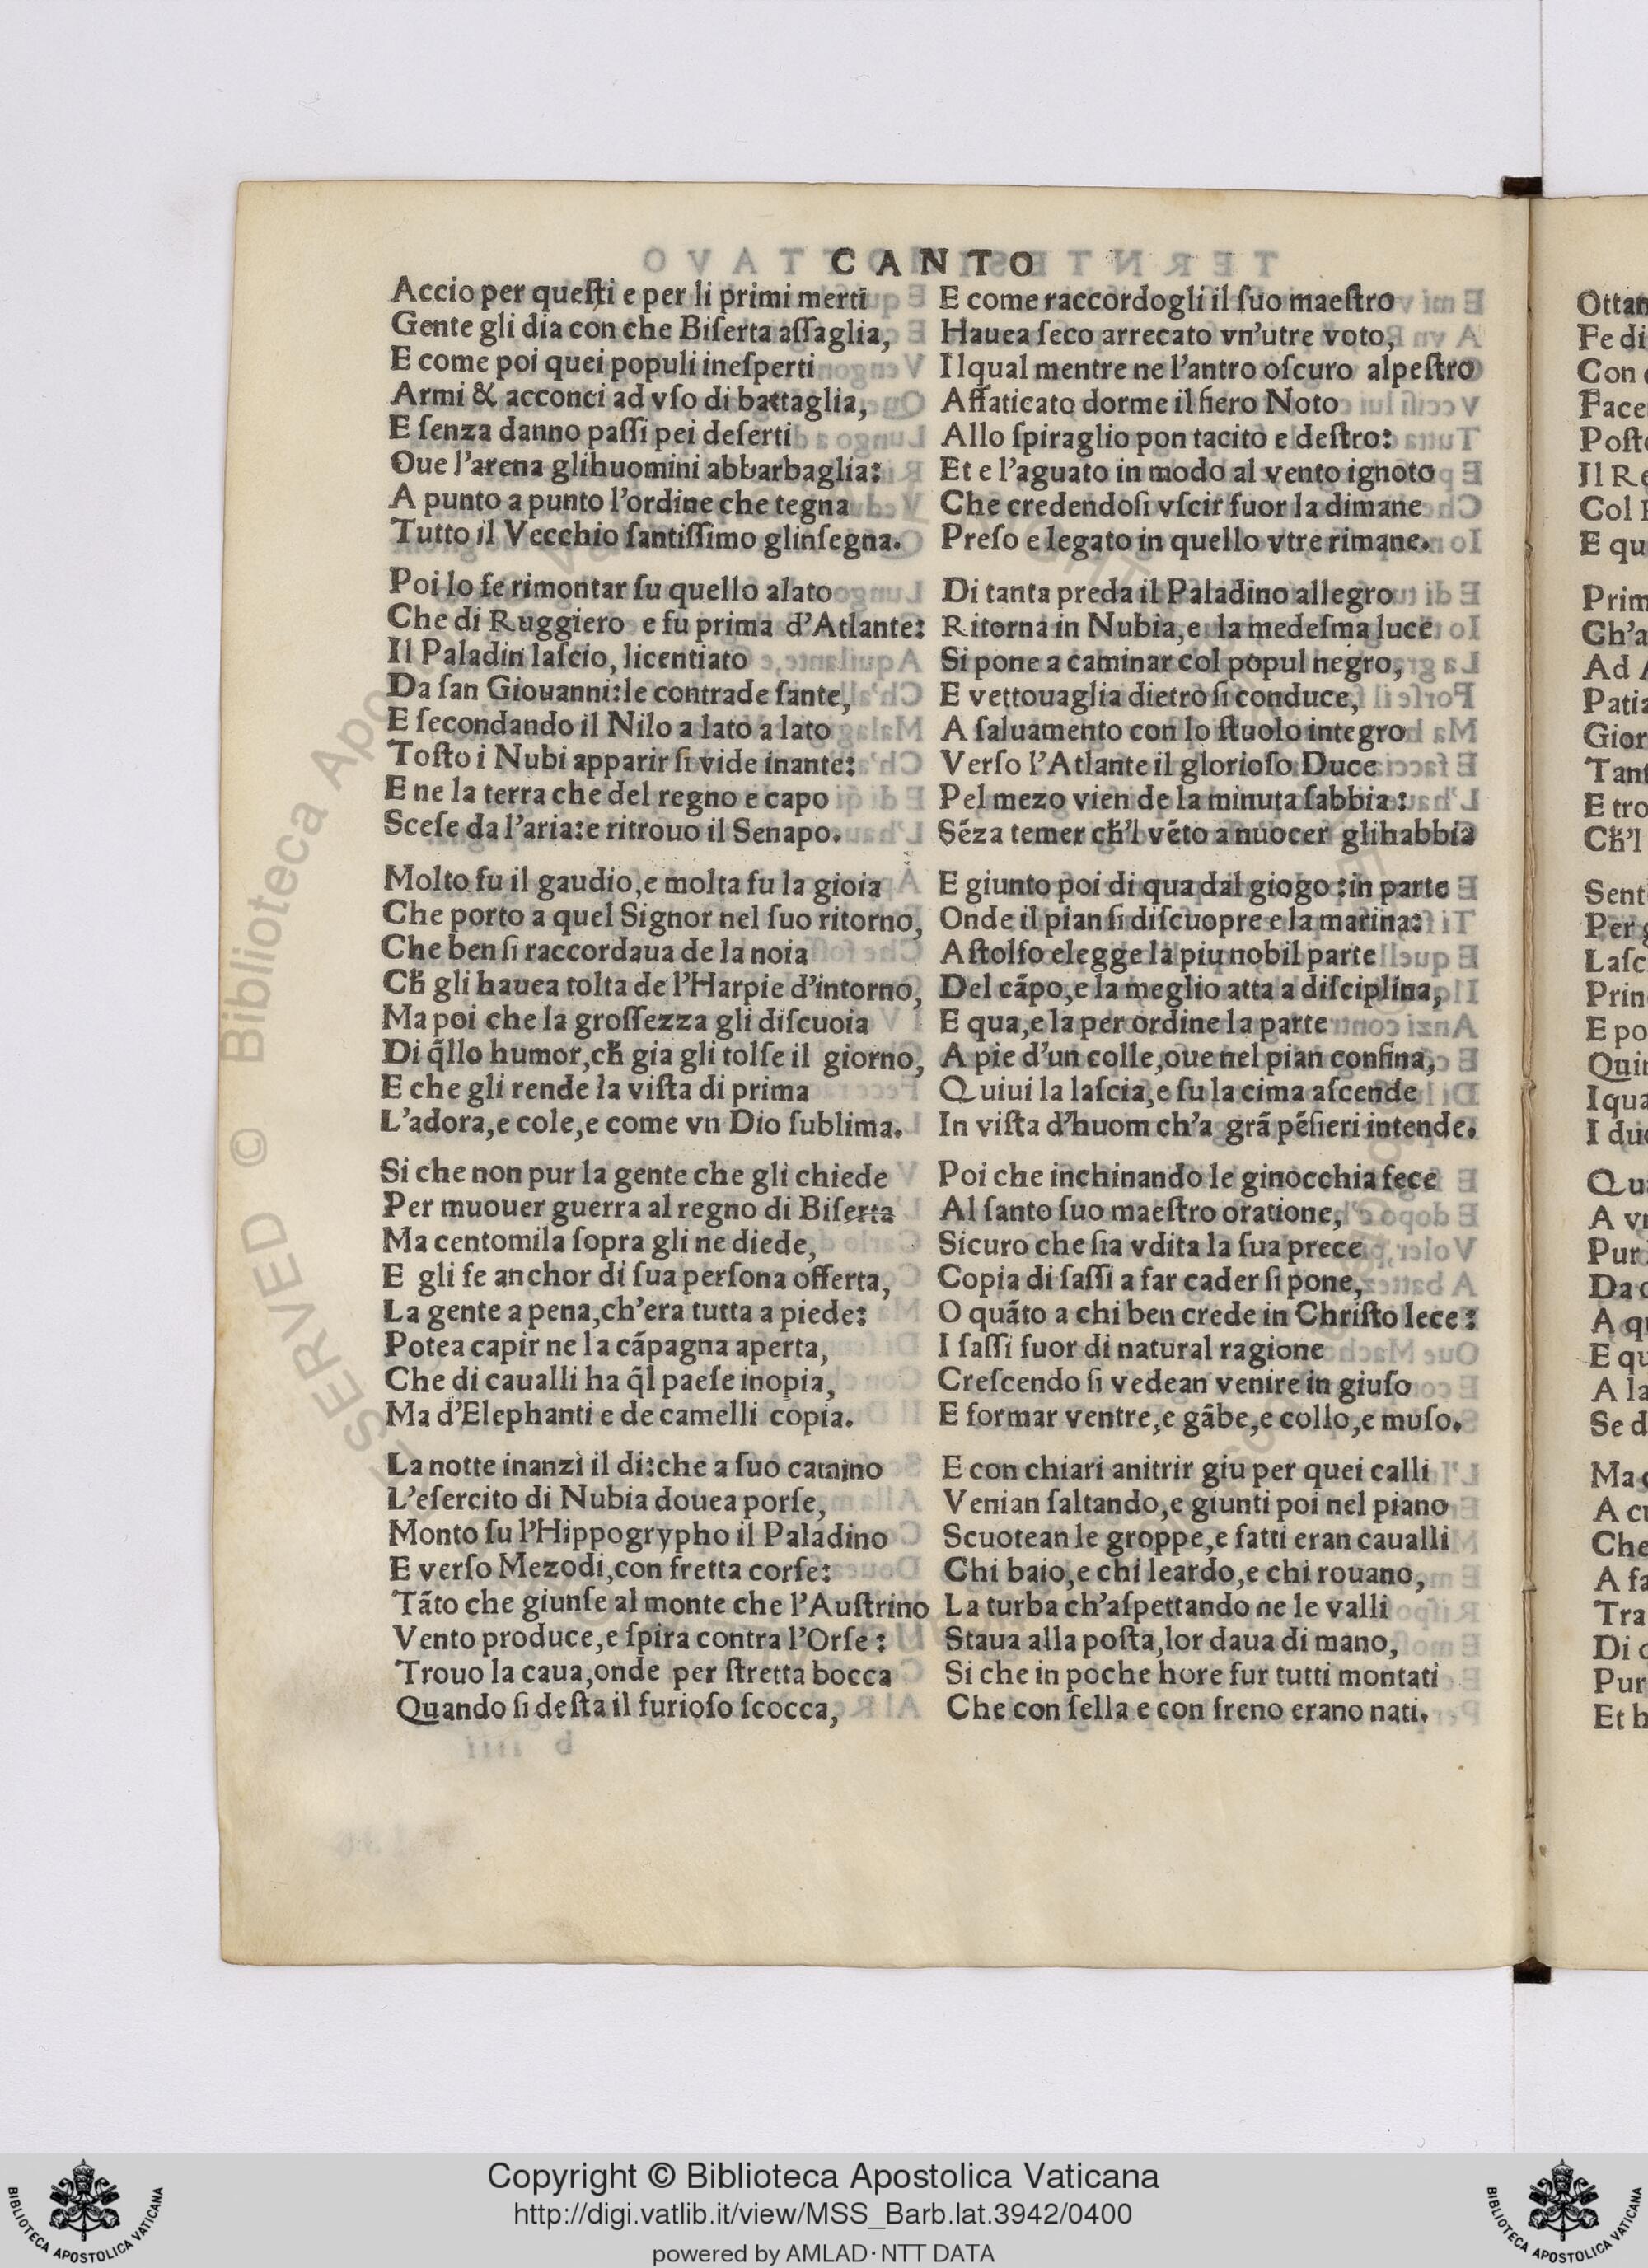 CANTO
Accio per queſti e per li primi merti
Gente gli dia con che Biſerta aſſaglia,
E come poi quei populi ineſperti
Armi & acconci ad vſo di battaglia,
E ſenza danno paſſi pei deſerti
Oue l'arena glihuomini abbarbaglia:
A punto a punto l'ordine che tegna
Tutto il Vecchio ſantiſſimo glinſegna.
Poi lo fe rimontar ſu quello alato
Che di Ruggiero e fu prima d'Atlante:
Il Paladin laſcio, licentiato
Da ſan Giouanni:le contrade ſante,
E ſecondando il Nilo a lato a lato
Toſto i Nubi apparir ſi vide inante:
E ne la terra che del regno e capo
Sceſe da l'aria:e ritrouo il Senapo.
Molto fu il gaudio,e molta fu la gioia
Che porto a quel Signor nel ſuo ritorno,
Che ben ſi raccordaua de la noia
Cħ gli hauea tolta de l'Harpie d'intorno,
Ma poi che la groſſezza gli diſcuoia
Di q̃llo humor,cħ gia gli tolſe il giorno,
E che gli rende la viſta di prima
L'adora,e cole,e come vn Dio ſublima.
Si che non pur la gente che gli chiede
Per muouer guerra al regno di Biſerta
Ma centomila ſopra gli ne diede,
E gli fe anchor di ſua perſona offerta,
La gente a pena,ch'era tutta a piede:
Potea capir ne la cãpagna aperta,
Che di caualli ha q̃l paeſe inopia,
Ma d'Elephanti e de camelli copia.
La notte inanzi il di:che a ſuo camino
L'eſercito di Nubia douea porſe,
Monto ſu l'Hippogrypho il Paladino
E verſo Mezodi,con fretta corſe:
Tãto che giunſe al monte che l'Auſtrino
Vento produce,e ſpira contra l'Orſe:
Trouo la caua,onde per ſtretta bocca
Quando ſi deſta il furioſo ſcocca,
E come raccordogli il ſuo maeſtro
Hauea ſeco arrecato vn'utre voto,
Ilqual mentre ne l'antro oſcuro alpeſtro
Affaticato dorme il fiero Noto
Allo ſpiraglio pon tacito e deſtro:
Et e l'aguato in modo al vento ignoto
Che credendoſi vſcir fuor la dimane
Preſo e legato in quello vtre rimane.
Di tanta preda il Paladino allegro
Ritorna in Nubia,e la medeſma luce
Si pone a caminar col popul negro,
E vettouaglia dietro ſi conduce,
A ſaluamento con lo ſtuolo integro
Verſo l'Atlante il glorioſo Duce
Pel mezo vien de la minuta ſabbia:
Sẽza temer cħ'l vẽto a nuocer glihabbia
E giunto poi di qua dal giogo:in parte
Onde il pian ſi diſcuopre e la marina:
Aſtolfo elegge la piu nobil parte
Del cãpo,e la meglio atta a diſciplina,
E qua,e la per ordine la parte
A pie d'un colle,oue nel pian confina,
Quiui la laſcia,e ſu la cima aſcende
In viſta d'huom ch'a grã pẽſieri intende.
Poi che inchinando le ginocchia fece
Al ſanto ſuo maeſtro oratione,
Sicuro che ſia vdita la ſua prece
Copia di ſaſſi a far cader ſi pone,
O quãto a chi ben crede in Chriſto lece:
I ſaſſi fuor di natural ragione
Creſcendo ſi vedean venire in giuſo
E formar ventre,e gãbe,e collo,e muſo.
E con chiari anitrir giu per quei calli
Venian ſaltando,e giunti poi nel piano
Scuotean le groppe,e fatti eran caualli
Chi baio,e chi leardo,e chi rouano,
La turba ch'aſpettando ne le valli
Staua alla poſta,lor daua di mano,
Si che in poche hore fur tutti montati
Che con ſella e con freno erano nati.
Fe di
Con
Il Re
E qu
Ch'a
Ad
E tro
Cħ'l
Per
E po
I du
A vn
Pur
E qu
A la
Se d
Che
A fa
Tra
Di
Pur
Et h
© Biblioteca Apo
Copyright © Biblioteca Apostolica Vaticana
http://digi.vatlib.it/view/MSS_Barb.lat.3942/0400
powered by AMLAD·NTT DATA
BIBLIOTECA APOSTOLICA VATICANA
BIBLIOTECA APOSTOLICA VATICANA